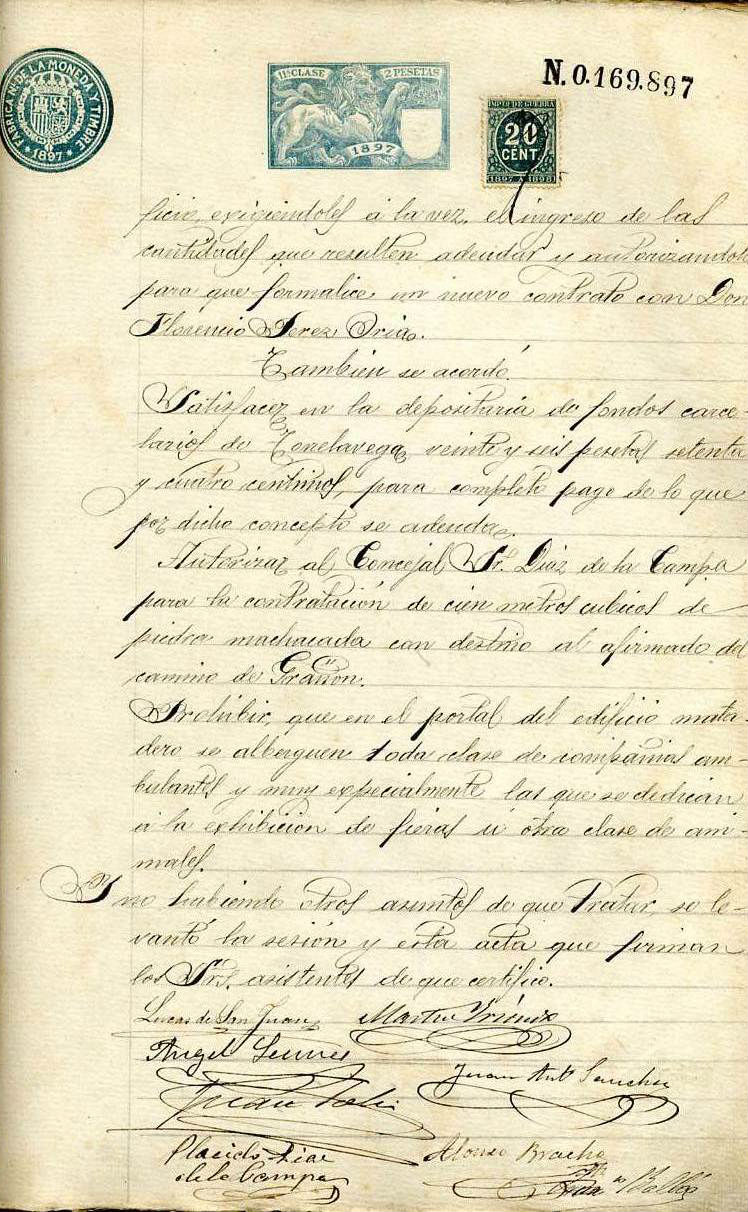 FÁBRICA Nˡ DE LA MONEDA Y TIMBRE
1897
11ª CLASE 2 PESETAS
1897
N.0.169.897
IMPTO DE GUERRA
20
CENT.
1897 A 1898
ficio, exigiendoles á la vez, el ingreso de las
cantidades que resulten adeudar y autorizandole
para que formalice un nuevo contrato con Don
Florencio Perez Oria.
También se acordó.
Satisfacer en la depositaria de fondos carce-
larios de Torrelavega, veinte y seis pesetas setenta
y cuatro centimos, para completo pago de lo que
por dicho concepto se adeuda.
Autorizar al Concejal Sr. Diaz de la Campa
para la contratación de cien metros cubicos de
piedra machacada con destino al afirmado del
camino de Grañon.
Prohibir, que en el portal del edificio mata-
dero se alberguen toda clase de compañias am-
bulantes y muy especialmente las que se dedican
á la exhibición de fieras ú otra clase de ani-
males.
Y no habiendo otros asuntos de que tratar, se le-
vantó la sesión y esta acta que firman
los Srs. asistentes de que certifico.
Lucas de San Juan
Angel
Juan Antº Sanchez
Juan
Placido Diaz
de la Campa
Alonso